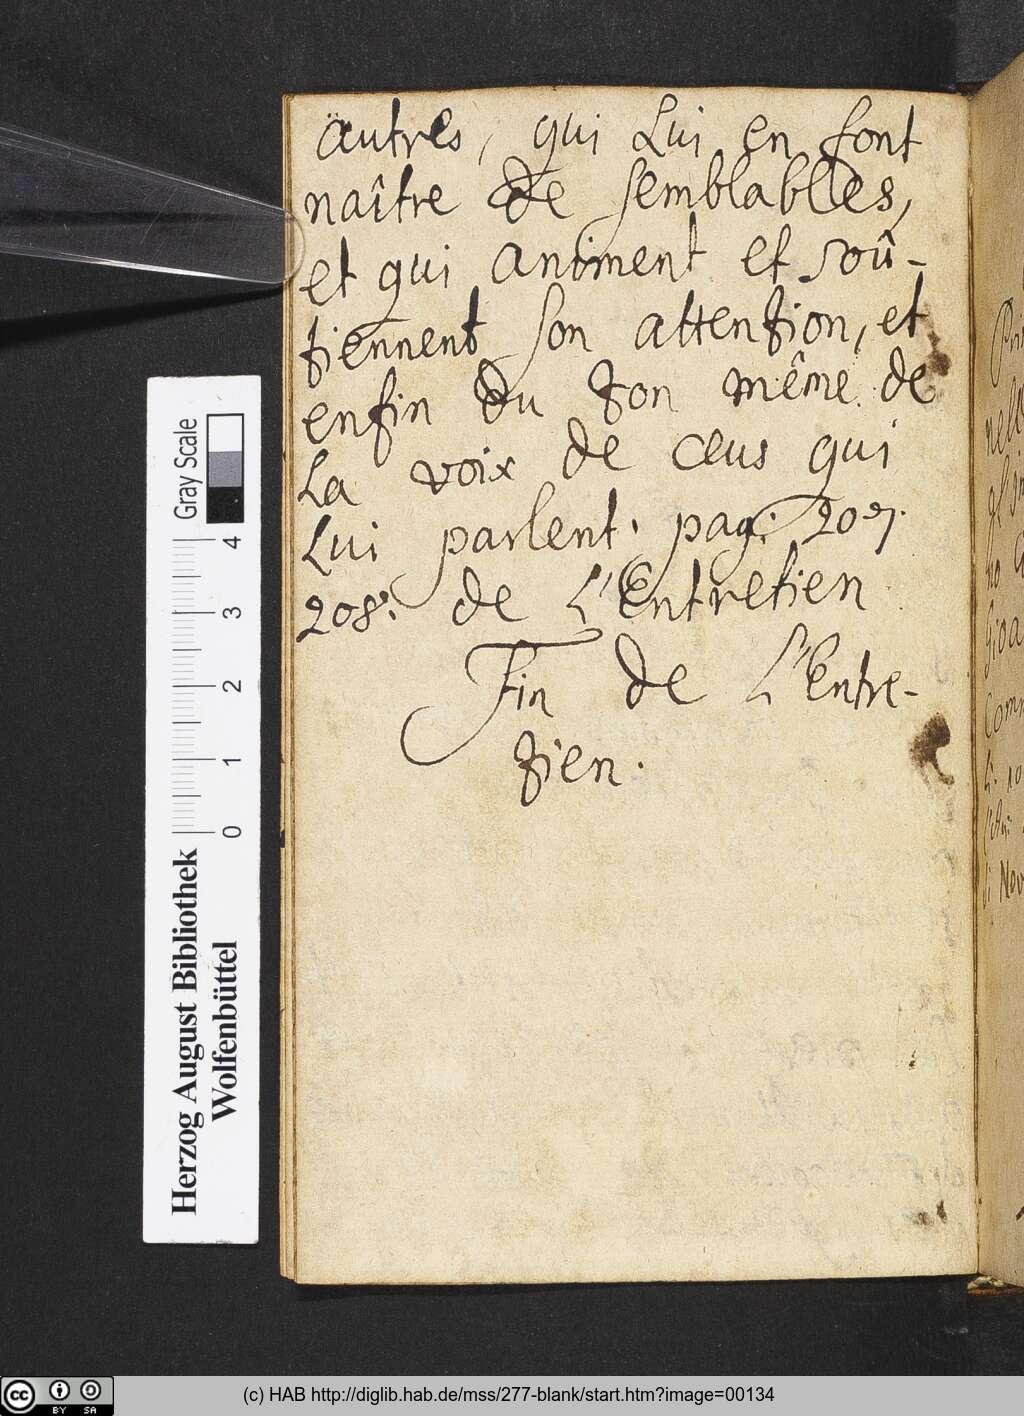 autres, qui Lui en font
naître de semblables,
et qui animent et soû-
tiennent son attention, et
enfin du ton même de
La voix de ceus qui
Lui parlent. pag: 207.
208. de L'Entretien
Fin de L'Entre-
tien.
Gray Scale
4
3
2
1
0
Herzog August Bibliothek
Wolfenbüttel
Com
cc BY SA
(c) HAB http://diglib.hab.de/mss/277-blank/start.htm?image=00134